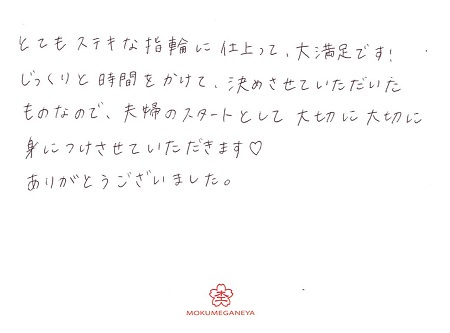 とてもステキな指輪に仕上って、大満足です!
じっくりと時間をかけて、決めさせていただいた
ものなので、夫婦のスタートとして大切に大切に
身につけさせていただきます♡
ありがとうございました。
MOKUMEGANEYA